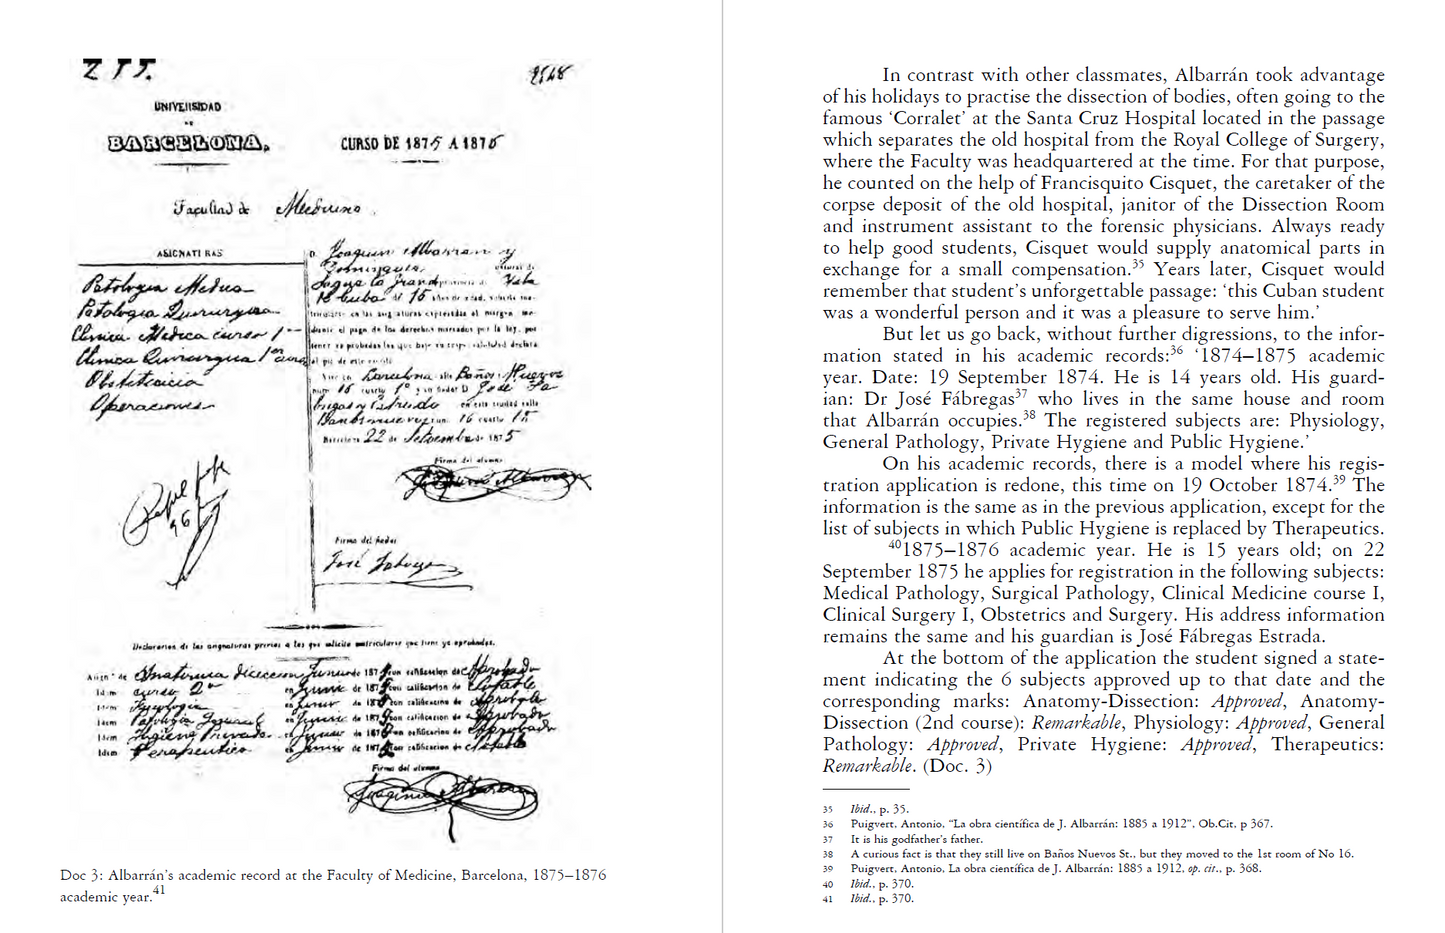 Z 75.
9548
UNIVERSIDAD
DE
BARCELONA.
CURSO DE 1875 A 1876
Facultad de Medicina
ASIGNATURAS
Patologia Medica
Patologia Quirurgica
Clinica Medica curso 1º
Clinica Quirurgica 1er curso
Obstetricia
Operaciones
D. Joaquin Albarran y
Dominguez, natural de
Sagua la Grande provincia de Isla
de Cuba de 15 años de edad, solicita ma-
tricularse en las asignaturas expresadas al margen, me-
diante el pago de los derechos marcados por la ley, por
tener ya probadas las que bajo su responsabilidad declara
al pie de este escrito
Vive en Barcelona calle Baños Nuevos
núm 16 cuarto 1º y su fiador D. José Fa-
bregas y Estrada en esta ciudad calle
num. 16 cuarto 1º
Barcelona 22 de Setiembre de 1875
Firma del alumno
Joaquin Albarran
Firma del fiador
José Fabregas
Declaracion de las asignaturas previas a las que solicita matricularse que tiene ya aprobadas.
Asign.ª de Anatomia Diseccion en Junio de 187 con calificacion de Aprobado
Idem curso 2º en Junio de 187 con calificacion de Notable
Idem Fisiologia en Junio de 187 con calificacion de Aprobado
Idem Patologia General en Junio de 187 con calificacion de Aprobado
Idem Higiene Privada en Junio de 187 con calificacion de Aprobado
Idem Terapeutica en Junio de 187 con calificacion de Notable
Firma del alumno
Joaquin Albarran
Doc 3: Albarrán's academic record at the Faculty of Medicine, Barcelona, 1875–1876
academic year.41
In contrast with other classmates, Albarrán took advantage
of his holidays to practise the dissection of bodies, often going to the
famous ‘Corralet’ at the Santa Cruz Hospital located in the passage
which separates the old hospital from the Royal College of Surgery,
where the Faculty was headquartered at the time. For that purpose,
he counted on the help of Francisquito Cisquet, the caretaker of the
corpse deposit of the old hospital, janitor of the Dissection Room
and instrument assistant to the forensic physicians. Always ready
to help good students, Cisquet would supply anatomical parts in
exchange for a small compensation.35 Years later, Cisquet would
remember that student's unforgettable passage: ‘this Cuban student
was a wonderful person and it was a pleasure to serve him.’
But let us go back, without further digressions, to the infor-
mation stated in his academic records:36 ‘1874–1875 academic
year. Date: 19 September 1874. He is 14 years old. His guard-
ian: Dr José Fábregas37 who lives in the same house and room
that Albarrán occupies.38 The registered subjects are: Physiology,
General Pathology, Private Hygiene and Public Hygiene.’
On his academic records, there is a model where his regis-
tration application is redone, this time on 19 October 1874.39 The
information is the same as in the previous application, except for the
list of subjects in which Public Hygiene is replaced by Therapeutics.
401875–1876 academic year. He is 15 years old; on 22
September 1875 he applies for registration in the following subjects:
Medical Pathology, Surgical Pathology, Clinical Medicine course I,
Clinical Surgery I, Obstetrics and Surgery. His address information
remains the same and his guardian is José Fábregas Estrada.
At the bottom of the application the student signed a state-
ment indicating the 6 subjects approved up to that date and the
corresponding marks: Anatomy-Dissection: Approved, Anatomy-
Dissection (2nd course): Remarkable, Physiology: Approved, General
Pathology: Approved, Private Hygiene: Approved, Therapeutics:
Remarkable. (Doc. 3)
35 Ibid., p. 35.
36 Puigvert, Antonio, “La obra científica de J. Albarrán: 1885 a 1912”, Ob.Cit, p 367.
37 It is his godfather's father.
38 A curious fact is that they still live on Baños Nuevos St., but they moved to the 1st room of No 16.
39 Puigvert, Antonio, La obra científica de J. Albarrán: 1885 a 1912, op. cit., p. 368.
40 Ibid., p. 370.
41 Ibid., p. 370.